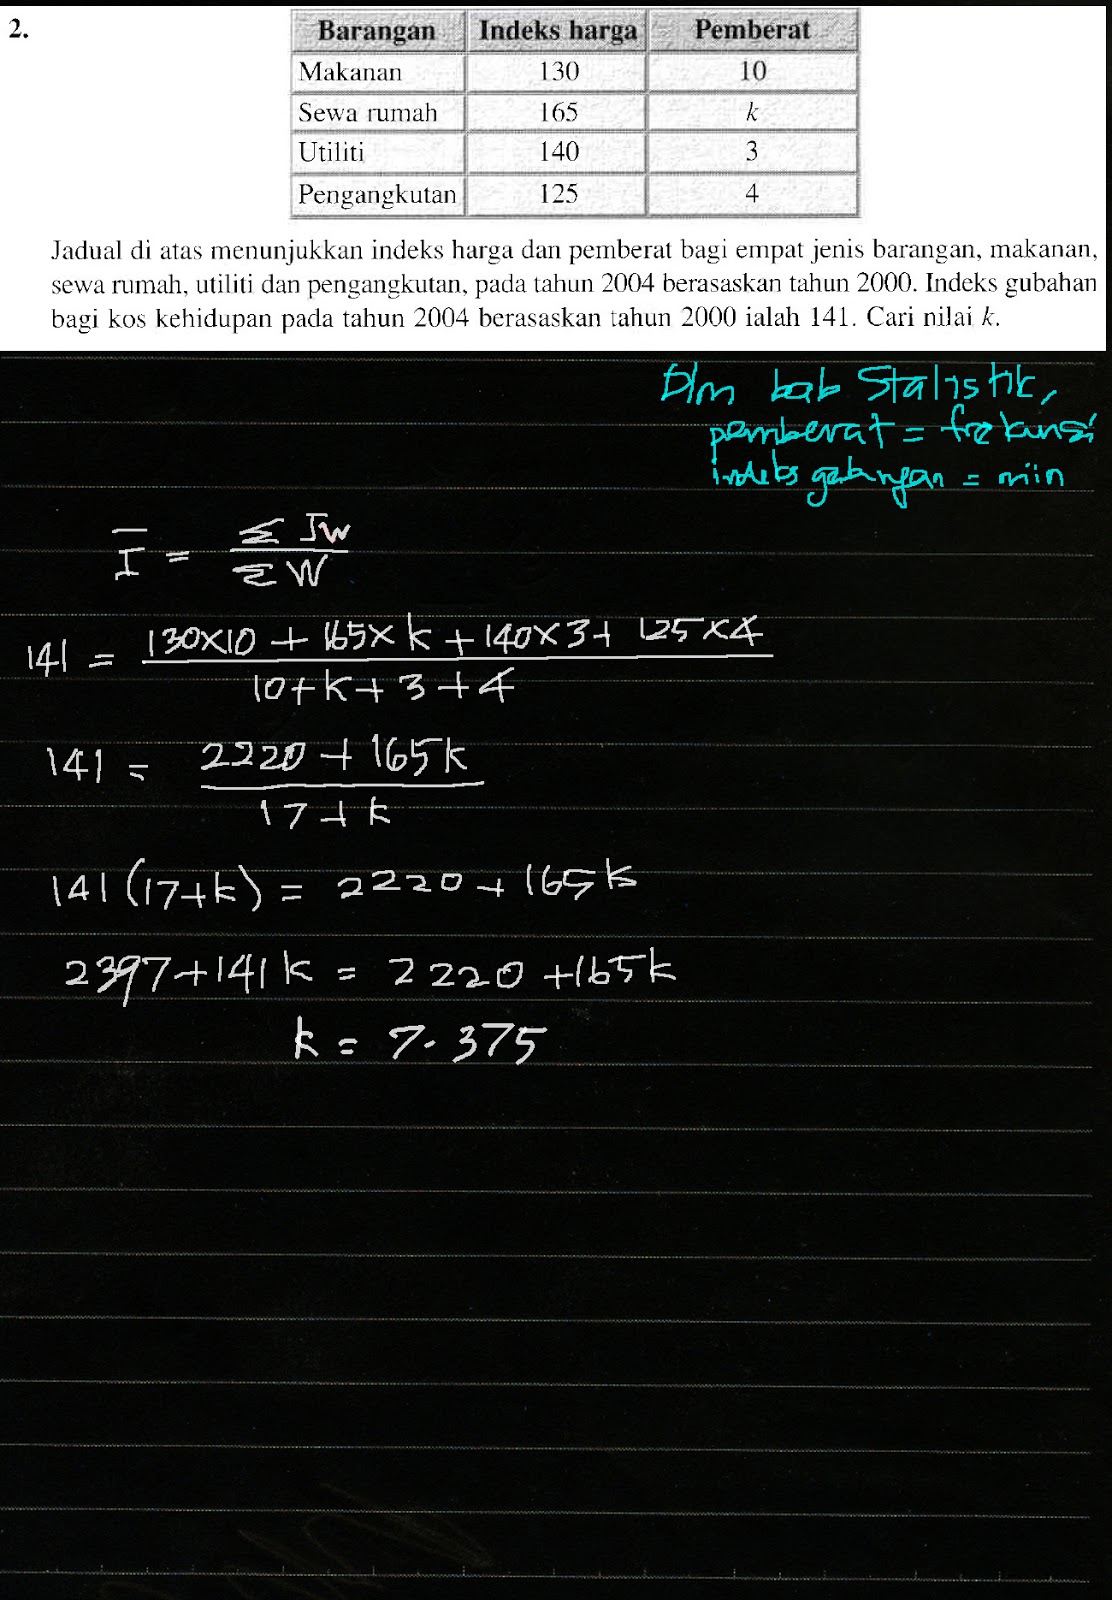 2.
Barangan Indeks harga Pemberat
Makanan 130 10
Sewa rumah 165 k
Utiliti 140 3
Pengangkutan 125 4
Jadual di atas menunjukkan indeks harga dan pemberat bagi empat jenis barangan, makanan,
sewa rumah, utiliti dan pengangkutan, pada tahun 2004 berasaskan tahun 2000. Indeks gubahan
bagi kos kehidupan pada tahun 2004 berasaskan tahun 2000 ialah 141. Cari nilai k.
Dlm bab Statistik,
pemberat = frekunsi
indeks gabungan = min
Ī = Σ Iw / Σ W
141 = 130×10 + 165× k + 140×3 + 125×4 / 10+k+3+4
141 = 2220 + 165k / 17+k
141 (17+k) = 2220 + 165k
2397+141k = 2220 +165k
k = 7.375